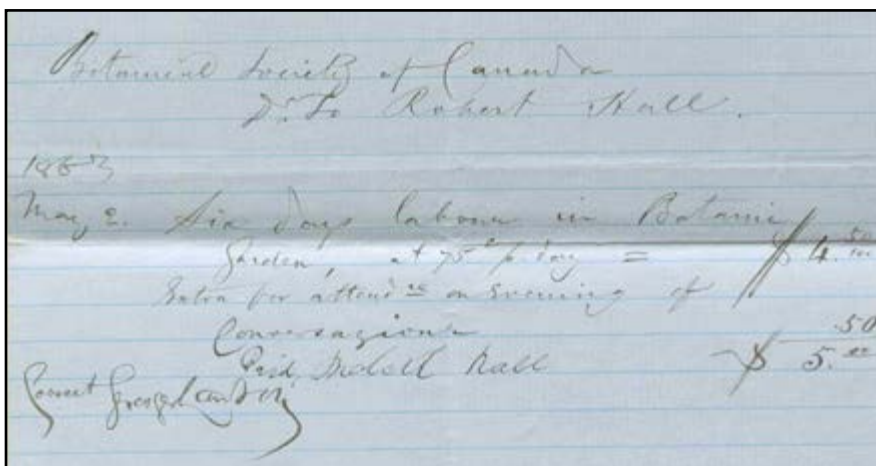 Botanical Society of Canada
Dr. To Robert Hall.
1863
May 2. Six days labour in Botanic
Garden, at 75c p. day = $ 4. 50/100
Extra for attendce on evening of
Conversazione .50
Paid, Hall $ 5. 00
Correct George Lawson